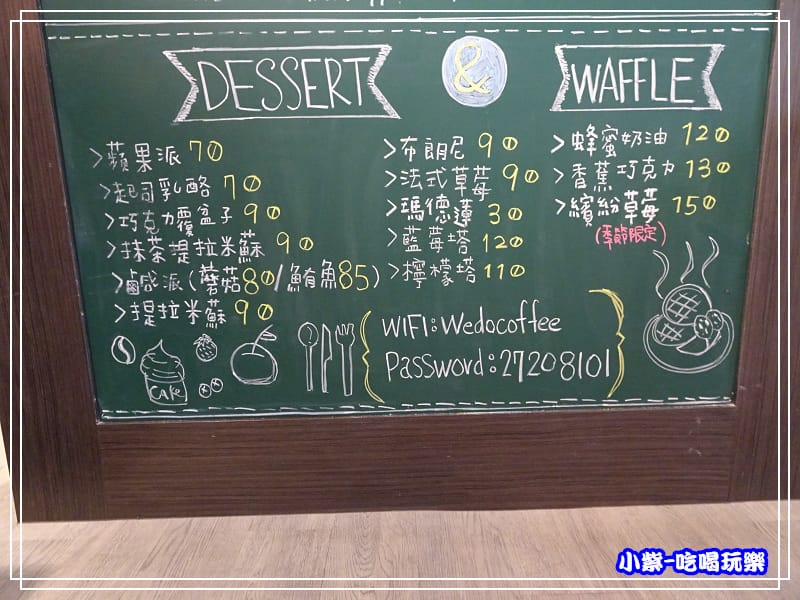 DESSERT & WAFFLE
>蘋果派 70
>起司乳酪 70
>巧克力覆盆子 90
>抹茶提拉米蘇 90
>鹹派(蘑菇80/鮪魚85)
>提拉米蘇 90
>布朗尼 90
>法式草莓 90
>瑪德蓮 30
>藍莓塔 120
>檸檬塔 110
>蜂蜜奶油 120
>香蕉巧克力 130
>繽紛草莓 150
(季節限定)
WIFI:Wedocoffee
Password:27208101
Cafe
小紫-吃喝玩樂